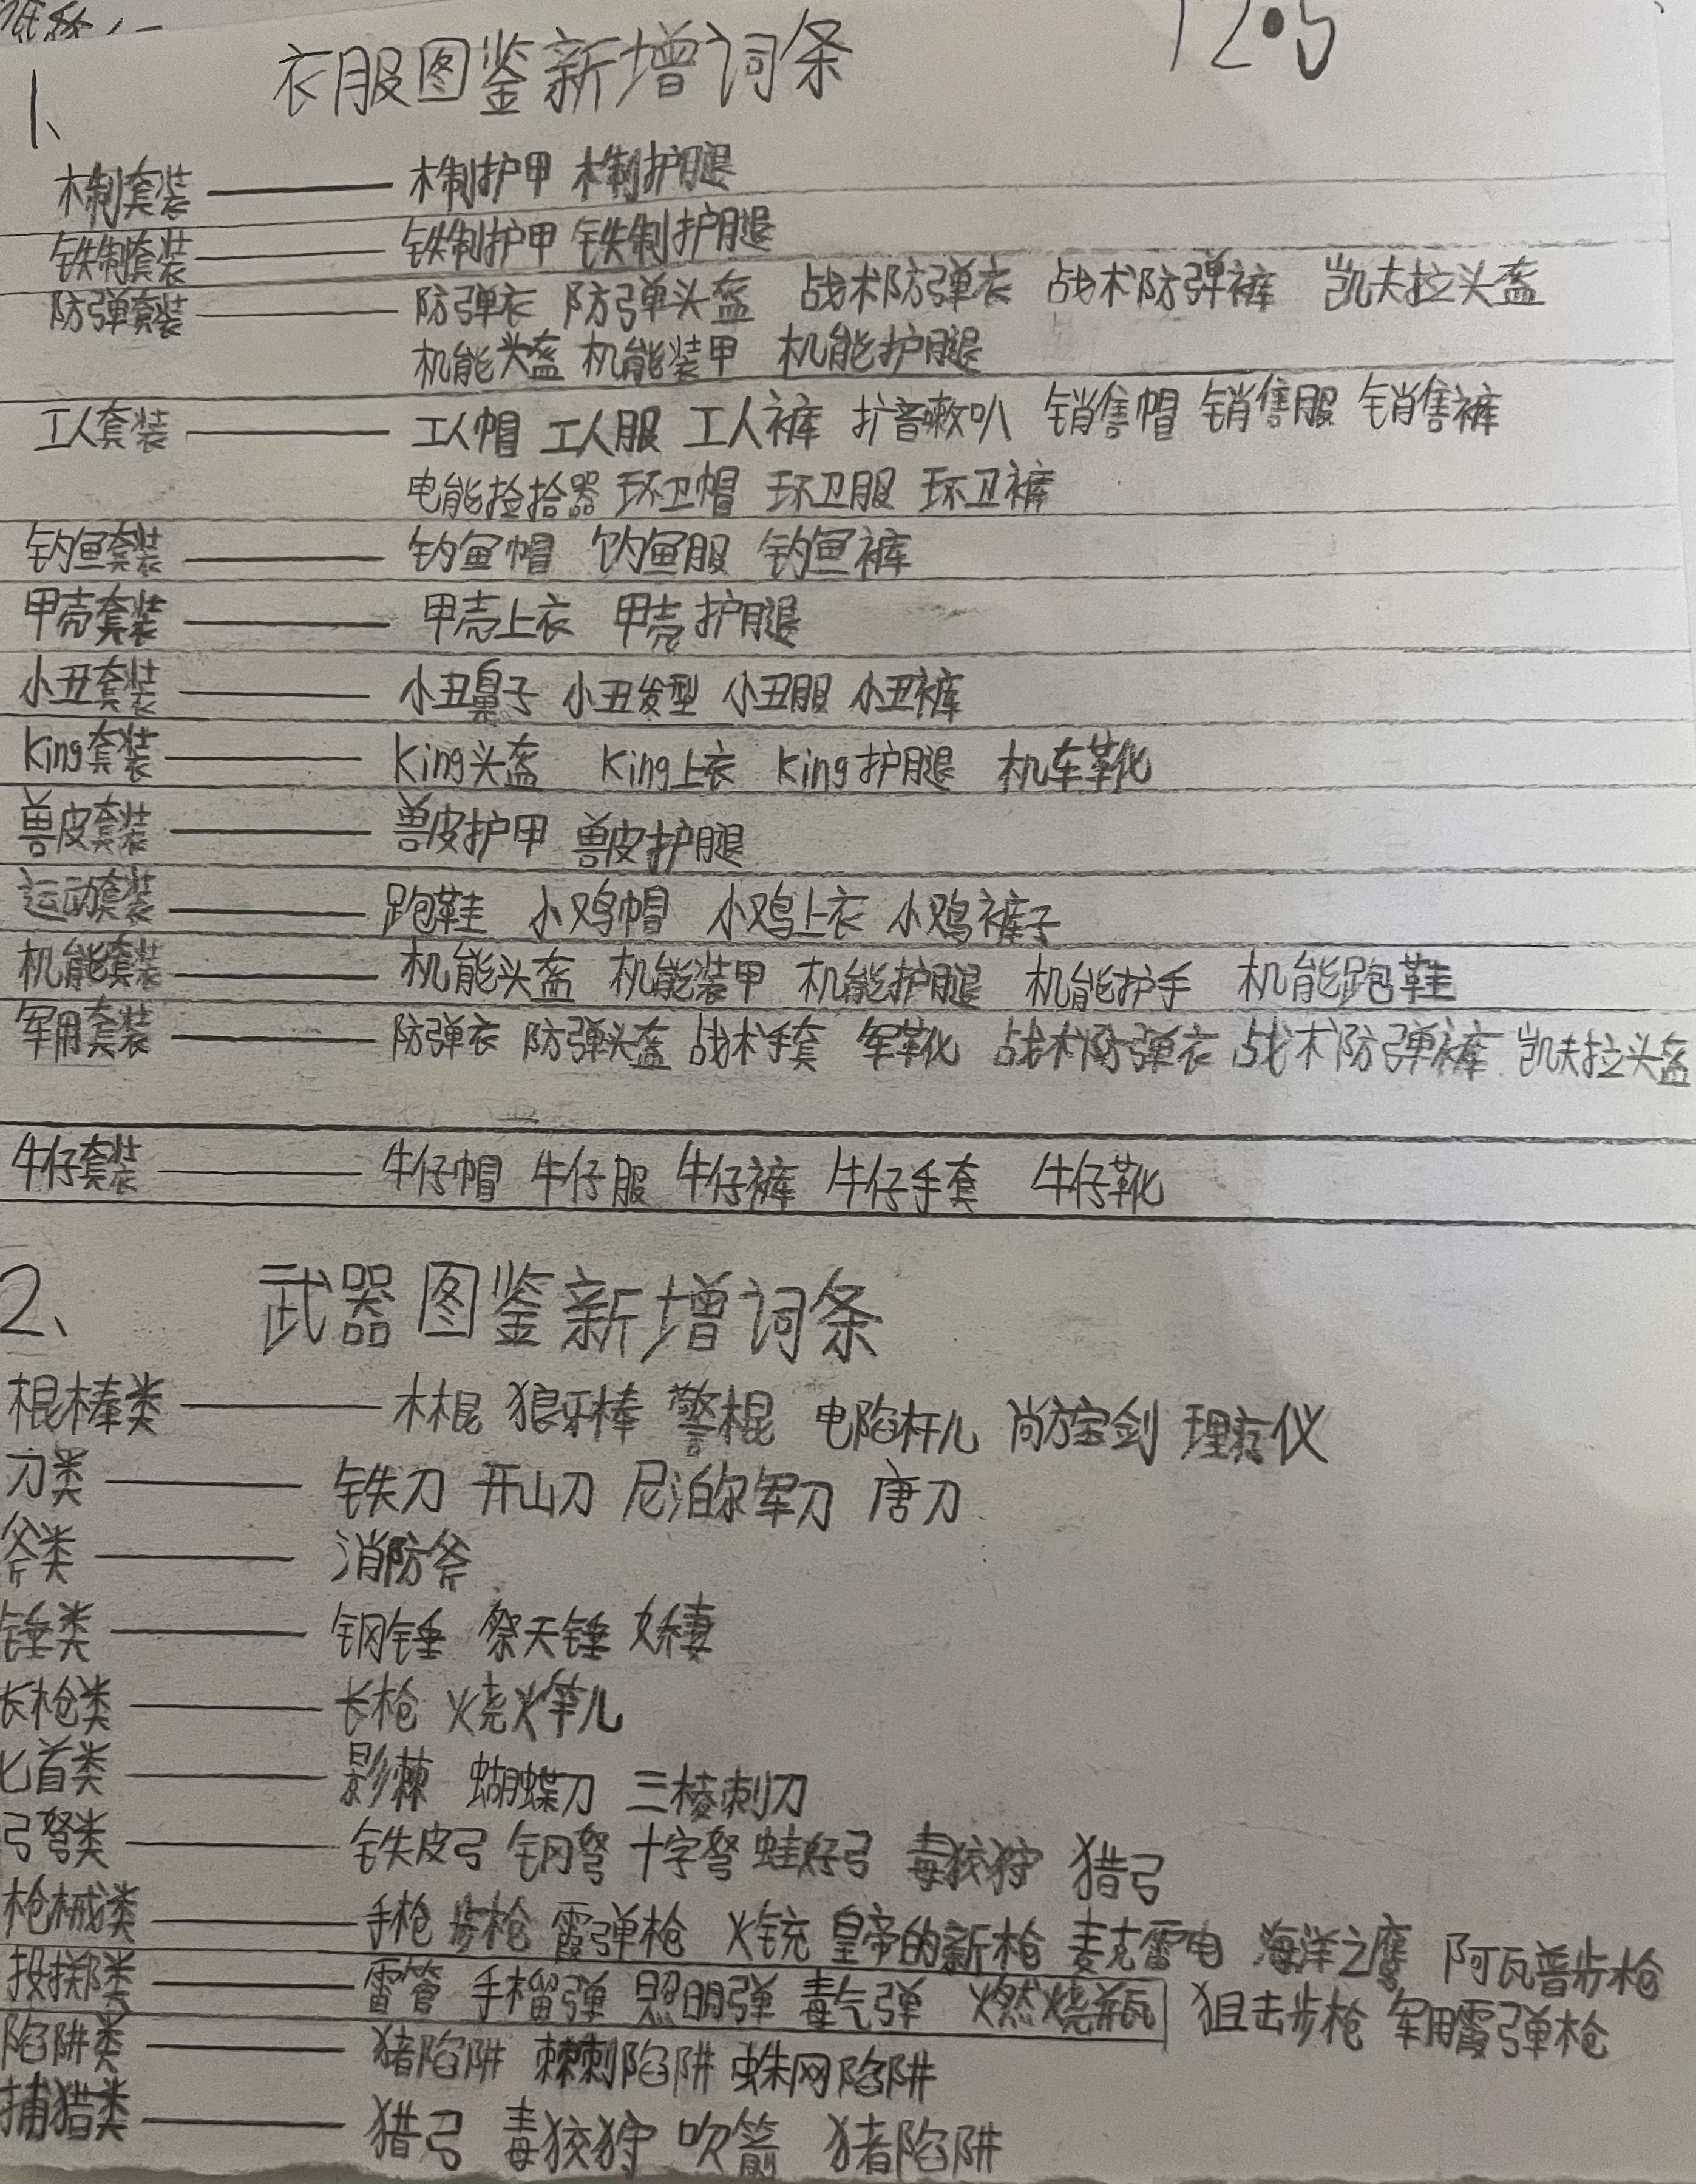 12.5
1、 衣服图鉴新增词条
木制套装——木制护甲 木制护腿
铁制套装——铁制护甲 铁制护腿
防弹套装——防弹衣 防弹头盔 战术防弹衣 战术防弹裤 凯夫拉头盔
机能头盔 机能装甲 机能护腿
工人套装——工人帽 工人服 工人裤 扩音喇叭 销售帽 销售服 销售裤
电能捡拾器 环卫帽 环卫服 环卫裤
钓鱼套装——钓鱼帽 钓鱼服 钓鱼裤
甲壳套装——甲壳上衣 甲壳护腿
小丑套装——小丑鼻子 小丑发型 小丑服 小丑裤
King套装——King头盔 King上衣 King护腿 机车靴
兽皮套装——兽皮护甲 兽皮护腿
运动套装——跑鞋 小鸡帽 小鸡上衣 小鸡裤子
机能套装——机能头盔 机能装甲 机能护腿 机能护手 机能跑鞋
军用套装——防弹衣 防弹头盔 战术手套 军靴 战术防弹衣 战术防弹裤 凯夫拉头盔
牛仔套装——牛仔帽 牛仔服 牛仔裤 牛仔手套 牛仔靴
2、 武器图鉴新增词条
棍棒类——木棍 狼牙棒 警棍 电陷杆儿 尚方宝剑 理疗仪
刀类——铁刀 开山刀 尼泊尔军刀 唐刀
斧类——消防斧
锤类——钢锤 祭天锤 娇妻
长枪类——长枪 烧火竿儿
匕首类——影棘 蝴蝶刀 三棱刺刀
弓弩类——铁皮弓 钢弩 十字弩 蛙好弓 毒狡狩 猎弓
枪械类——手枪 步枪 霰弹枪 火铳 皇帝的新枪 麦克雷电 海洋之鹰 阿瓦普步枪
投掷类——雷管 手榴弹 照明弹 毒气弹 燃烧瓶 狙击步枪 军用霰弹枪
陷阱类——猪陷阱 棘刺陷阱 蛛网陷阱
捕猎类——猎弓 毒狡狩 吹箭 猪陷阱